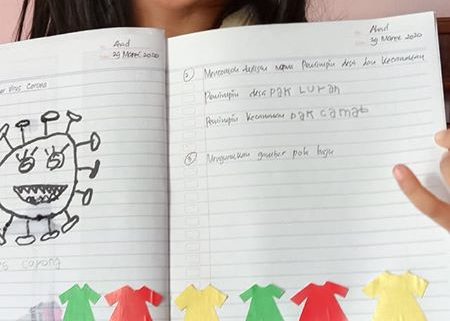 Ahad
29 Maret 2020
Virus Corona
Ahad
29 Maret 2020
2. Mencontoh tulisan nama Pemimpin desa dan Kecamatan
Pemimpin desa pak LuRah
Pemimpin Kecamatan pak camat
3. Mengurutkan gambar pola baju